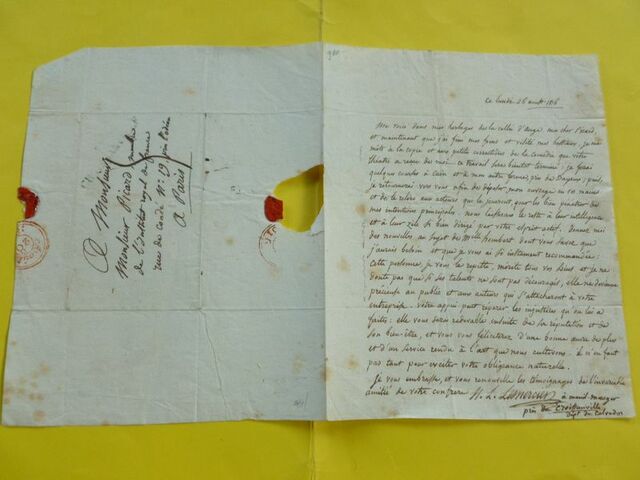 A Monsieur
Monsieur Picard membre
de l'Institut royal de france
rue de Condé N° 19 près l'odéon
à Paris
ce lundi 26 août 1816
Me voici dans mes herbages de la vallée d'auge, mon cher Picard,
et maintenant que j'ai fini mes foins et visité mes bestiaux, je me
mets à la copie et aux petites corrections de la comédie que votre
théâtre a reçue de moi. ce travail sera bientôt terminé : je ferai
quelques courses à Caen et à mon autre ferme, près de Bayeux ; puis,
je retournerai vers vous afin de déposer mon ouvrage en vos mains
et de le relire aux acteurs qui le joueront, pour les bien pénétrer de
mes intentions principales. nous laisserons le reste à leur intelligence
et à leur zèle si bien dirigé par votre esprit actif. donnez moi
des nouvelles, au sujet de Melle humbert dont vous savez que
j'aurais besoin et que je vous ai si instamment recommandée :
Cette personne, je vous le répète, mérite tous vos soins et je ne
doute pas que si ses talents ne sont pas découragés, elle ne devienne
précieuse au public et aux auteurs qui s'attacheront à votre
entreprise. votre appui peut réparer les injustices qu'on lui a
faites : elle vous sera redevable ensuite de sa réputation et de
son bien-être, et vous vous féliciterez d'une bonne œuvre de plus
et d'un service rendu à l'art que nous cultivons. il n'en faut
pas tant pour exciter votre obligeance naturelle.
Je vous embrasse, et vous renouvelle les témoignages de l'invariable
amitié de votre confrère N. L. Lemercier
à mesnil-mauger
près de Croissanville
dépt du Calvados